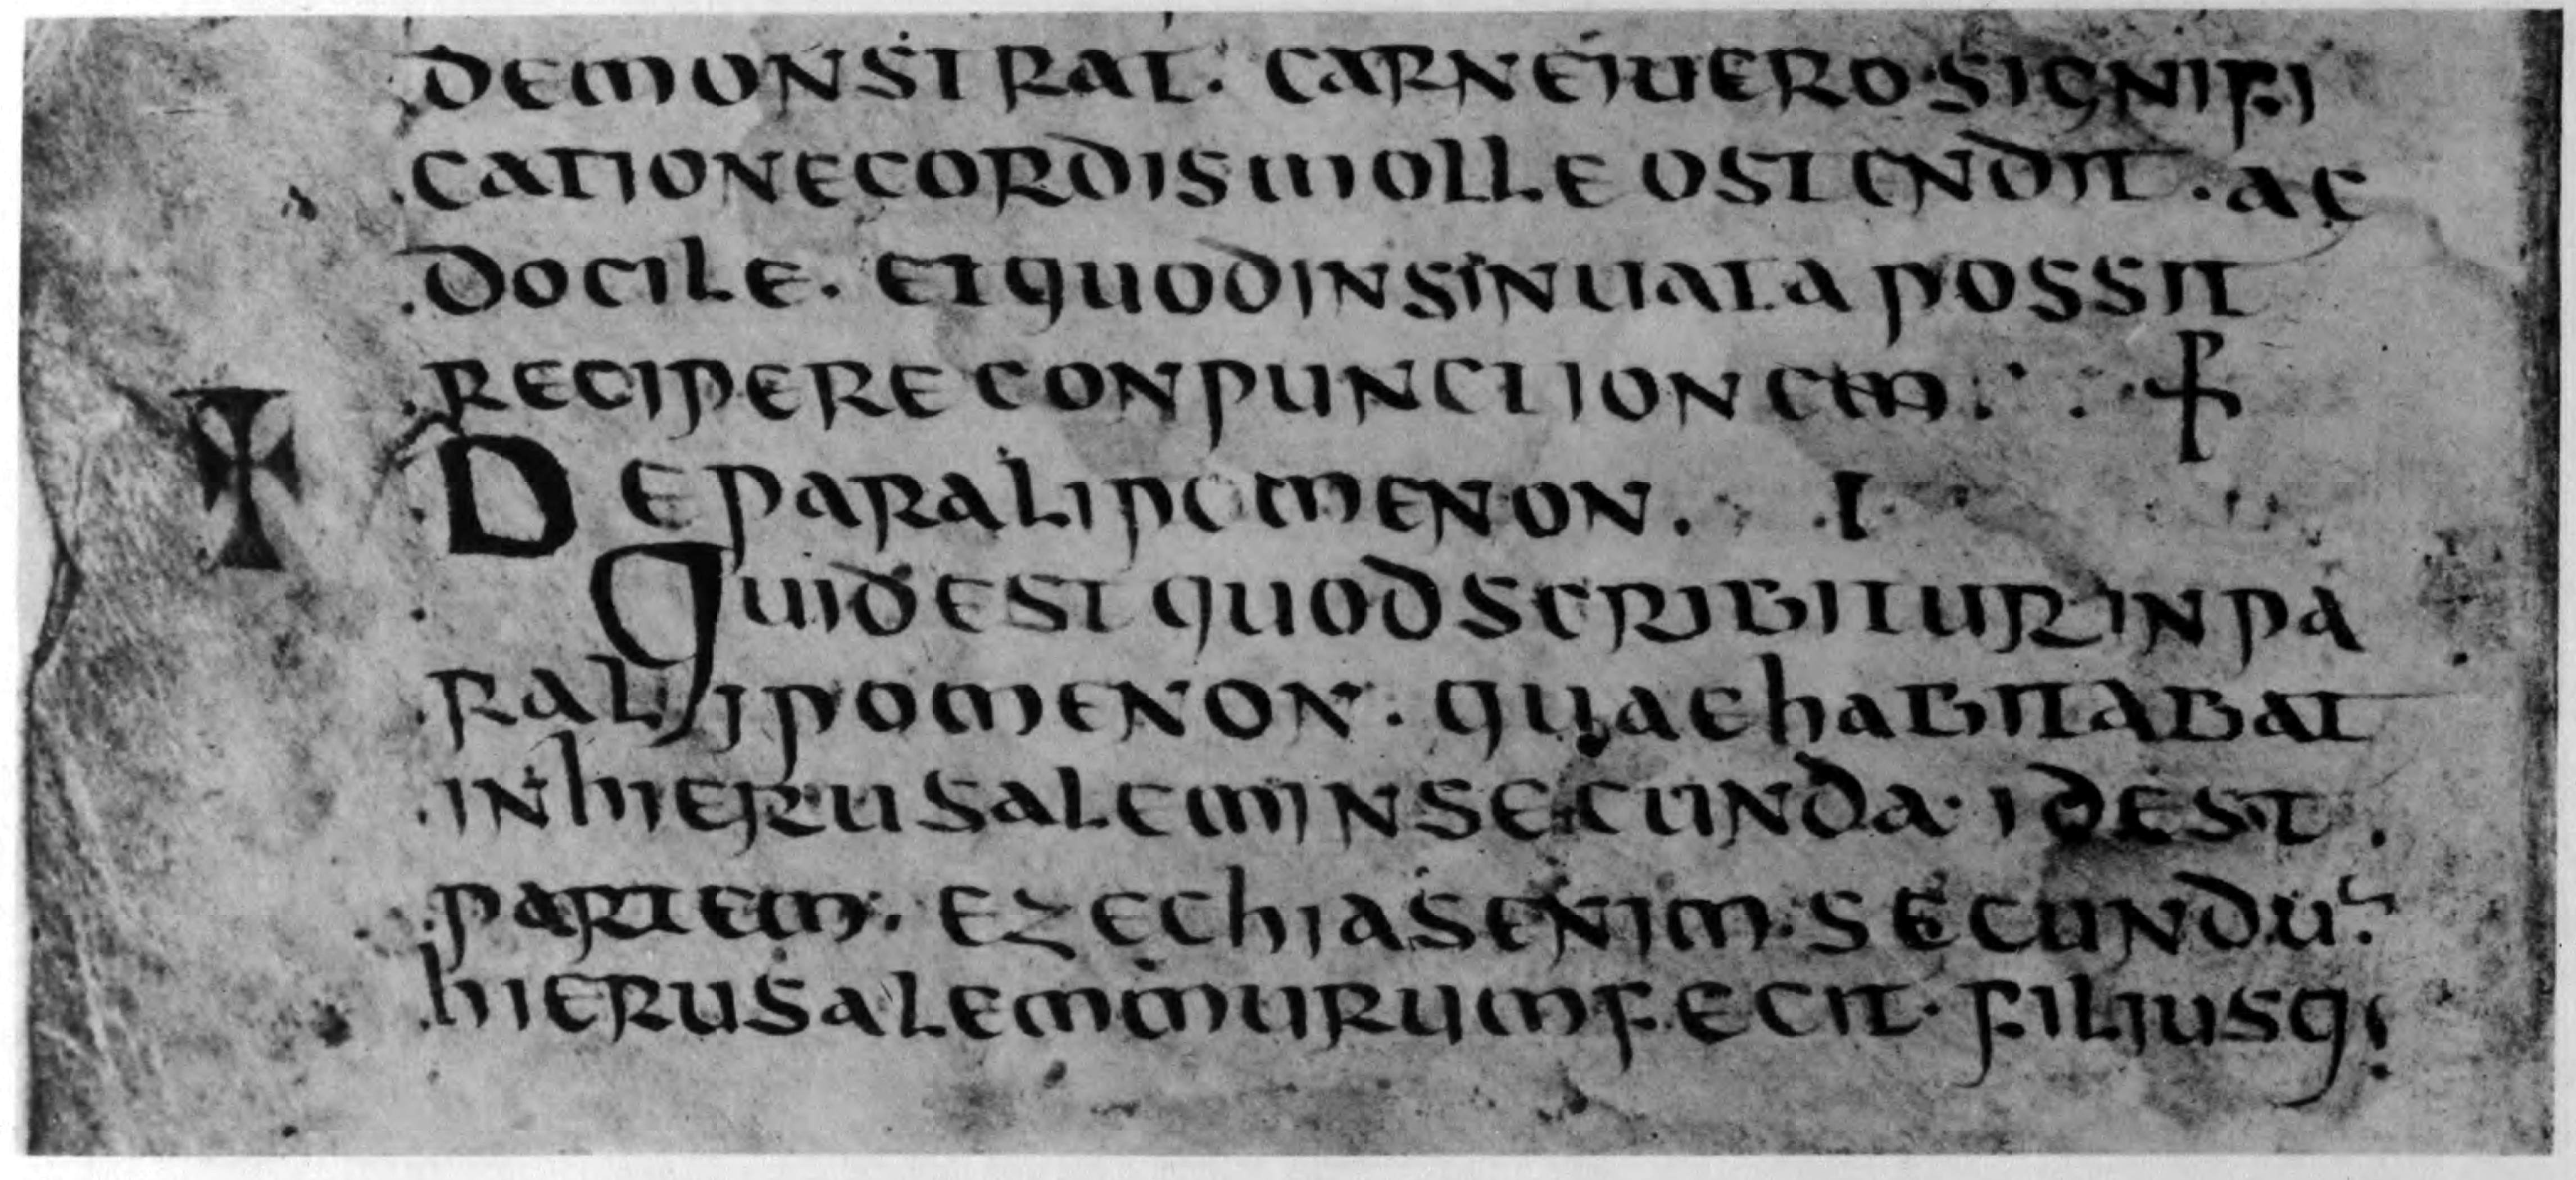 DEMONSTRAT. CARNEIUERO·SIGNIFI
CATIONECORDISMOLLEOSTENDIT. AC
DOCILE. ETQUODINSINUATAPOSSIT
RECIPERECONPUNCTIONEM:
DEPARALIPOMENON. I
QUIDESTQUODSCRIBITURINPA
RALIPOMENON. QUAEHABITABAT
INHIERUSALEMINSECUNDA·IDEST.
PARTEM. EZECHIASENIM·SECUNDU
HIERUSALEMMURUMFECIT·FILIUSQ;